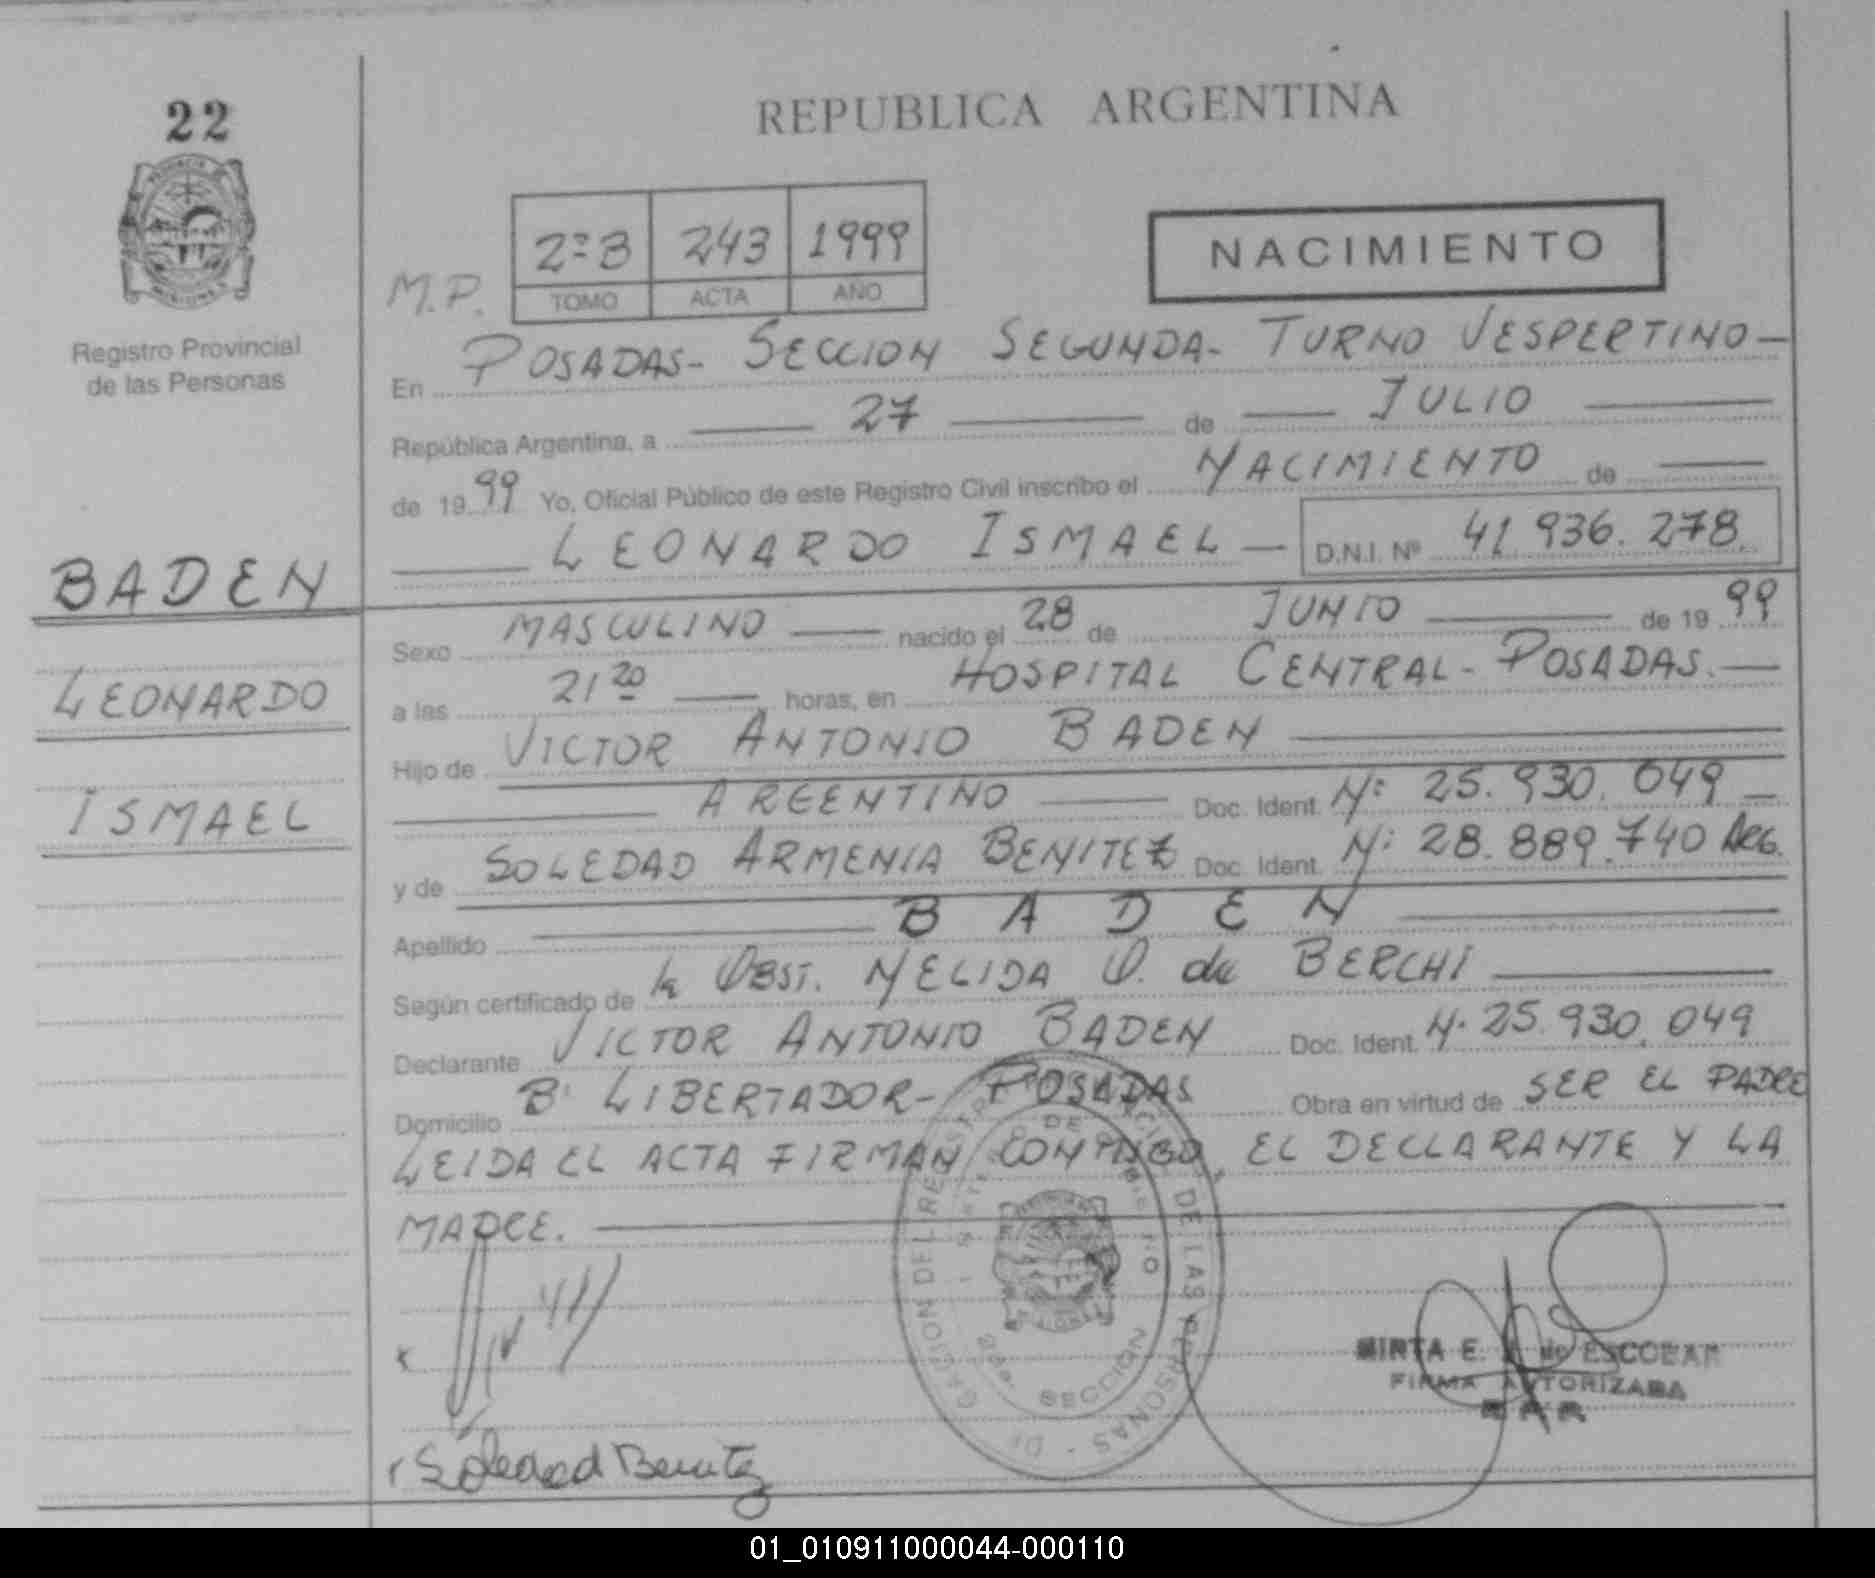 22
REPUBLICA ARGENTINA
2º B 243 1999
TOMO ACTA AÑO
M.P.
NACIMIENTO
Registro Provincial
de las Personas
En POSADAS - SECCION SEGUNDA - TURNO VESPERTINO -
República Argentina, a 27 de JULIO
de 1999 Yo, Oficial Público de este Registro Civil inscribo el NACIMIENTO de
LEONARDO ISMAEL - D.N.I. Nº 41.936.278
BADEN
LEONARDO
ISMAEL
Sexo MASCULINO nacido el 28 de JUNIO de 1999
a las 21 20 horas, en HOSPITAL CENTRAL - POSADAS. -
Hijo de VICTOR ANTONIO BADEN
ARGENTINO Doc. Ident. Nº 25.930.049 -
y de SOLEDAD ARMENIA BENITEZ Doc. Ident. Nº 28.889.740 ARG.
Apellido BADEN
Según certificado de la OBST. NELIDA O. de BERCHI
Declarante VICTOR ANTONIO BADEN Doc. Ident. Nº 25.930.049
Domicilio Bº LIBERTADOR - POSADAS Obra en virtud de SER EL PADRE
LEIDA EL ACTA FIRMAN CONMIGO, EL DECLARANTE Y LA
MADRE.
DEL REGISTRO DE LAS PERSONAS
SECCION
MIRTA E. de ESCOBAR
FIRMA AUTORIZADA
Soledad Benitez
01_010911000044-000110